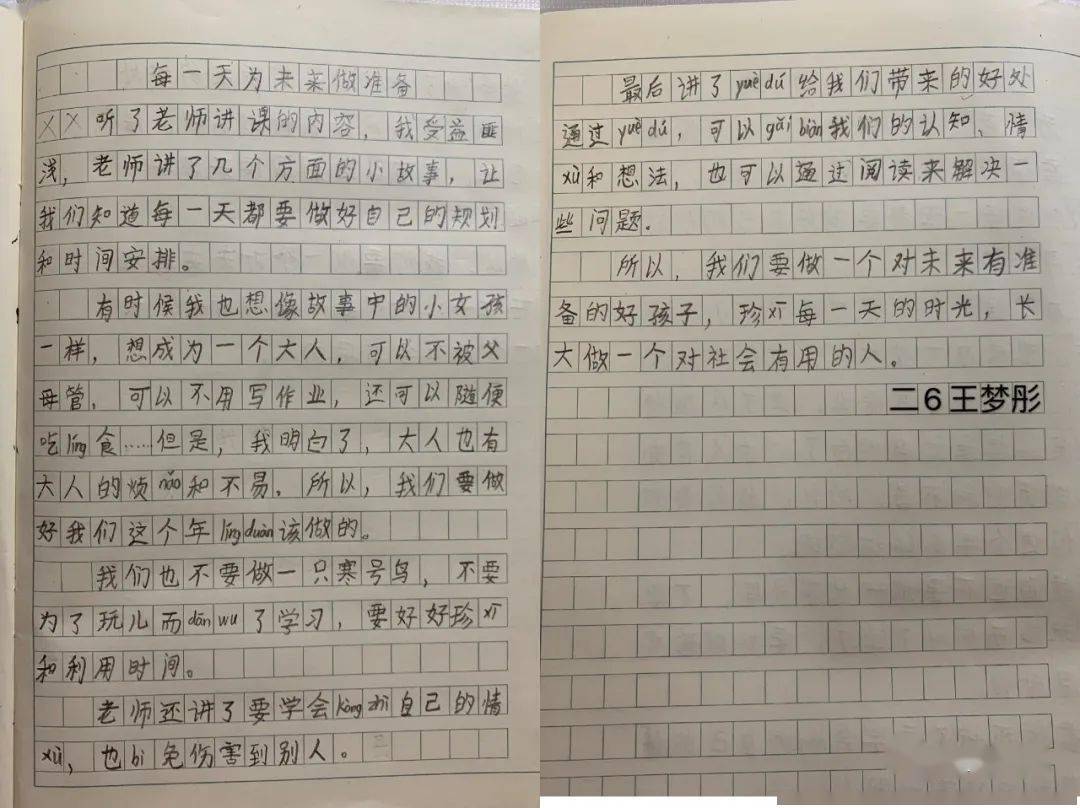 每一天为未来做准备
XX听了老师讲课的内容，我受益匪
浅，老师讲了几个方面的小故事，让
我们知道每一天都要做好自己的规划
和时间安排。
有时候我也想像故事中的小女孩
一样，想成为一个大人，可以不被父
母管，可以不用写作业，还可以随便
吃líng食……但是，我明白了，大人也有
大人的烦nǎo和不易，所以，我们要做
好我们这个年língduàn该做的。
我们也不要做一只寒号鸟，不要
为了玩儿而dānwu了学习，要好好珍xī
和利用时间。
老师还讲了要学会kòngzhì自己的情
xù，也bì免伤害到别人。
最后讲了yuèdú给我们带来的好处
通过yuèdú，可以gǎibiàn我们的认知、情
xù和想法，也可以通过阅读来解决一
些问题．
所以，我们要做一个对未来有准
备的好孩子，珍xī每一天的时光，长
大做一个对社会有用的人。
二6王梦彤